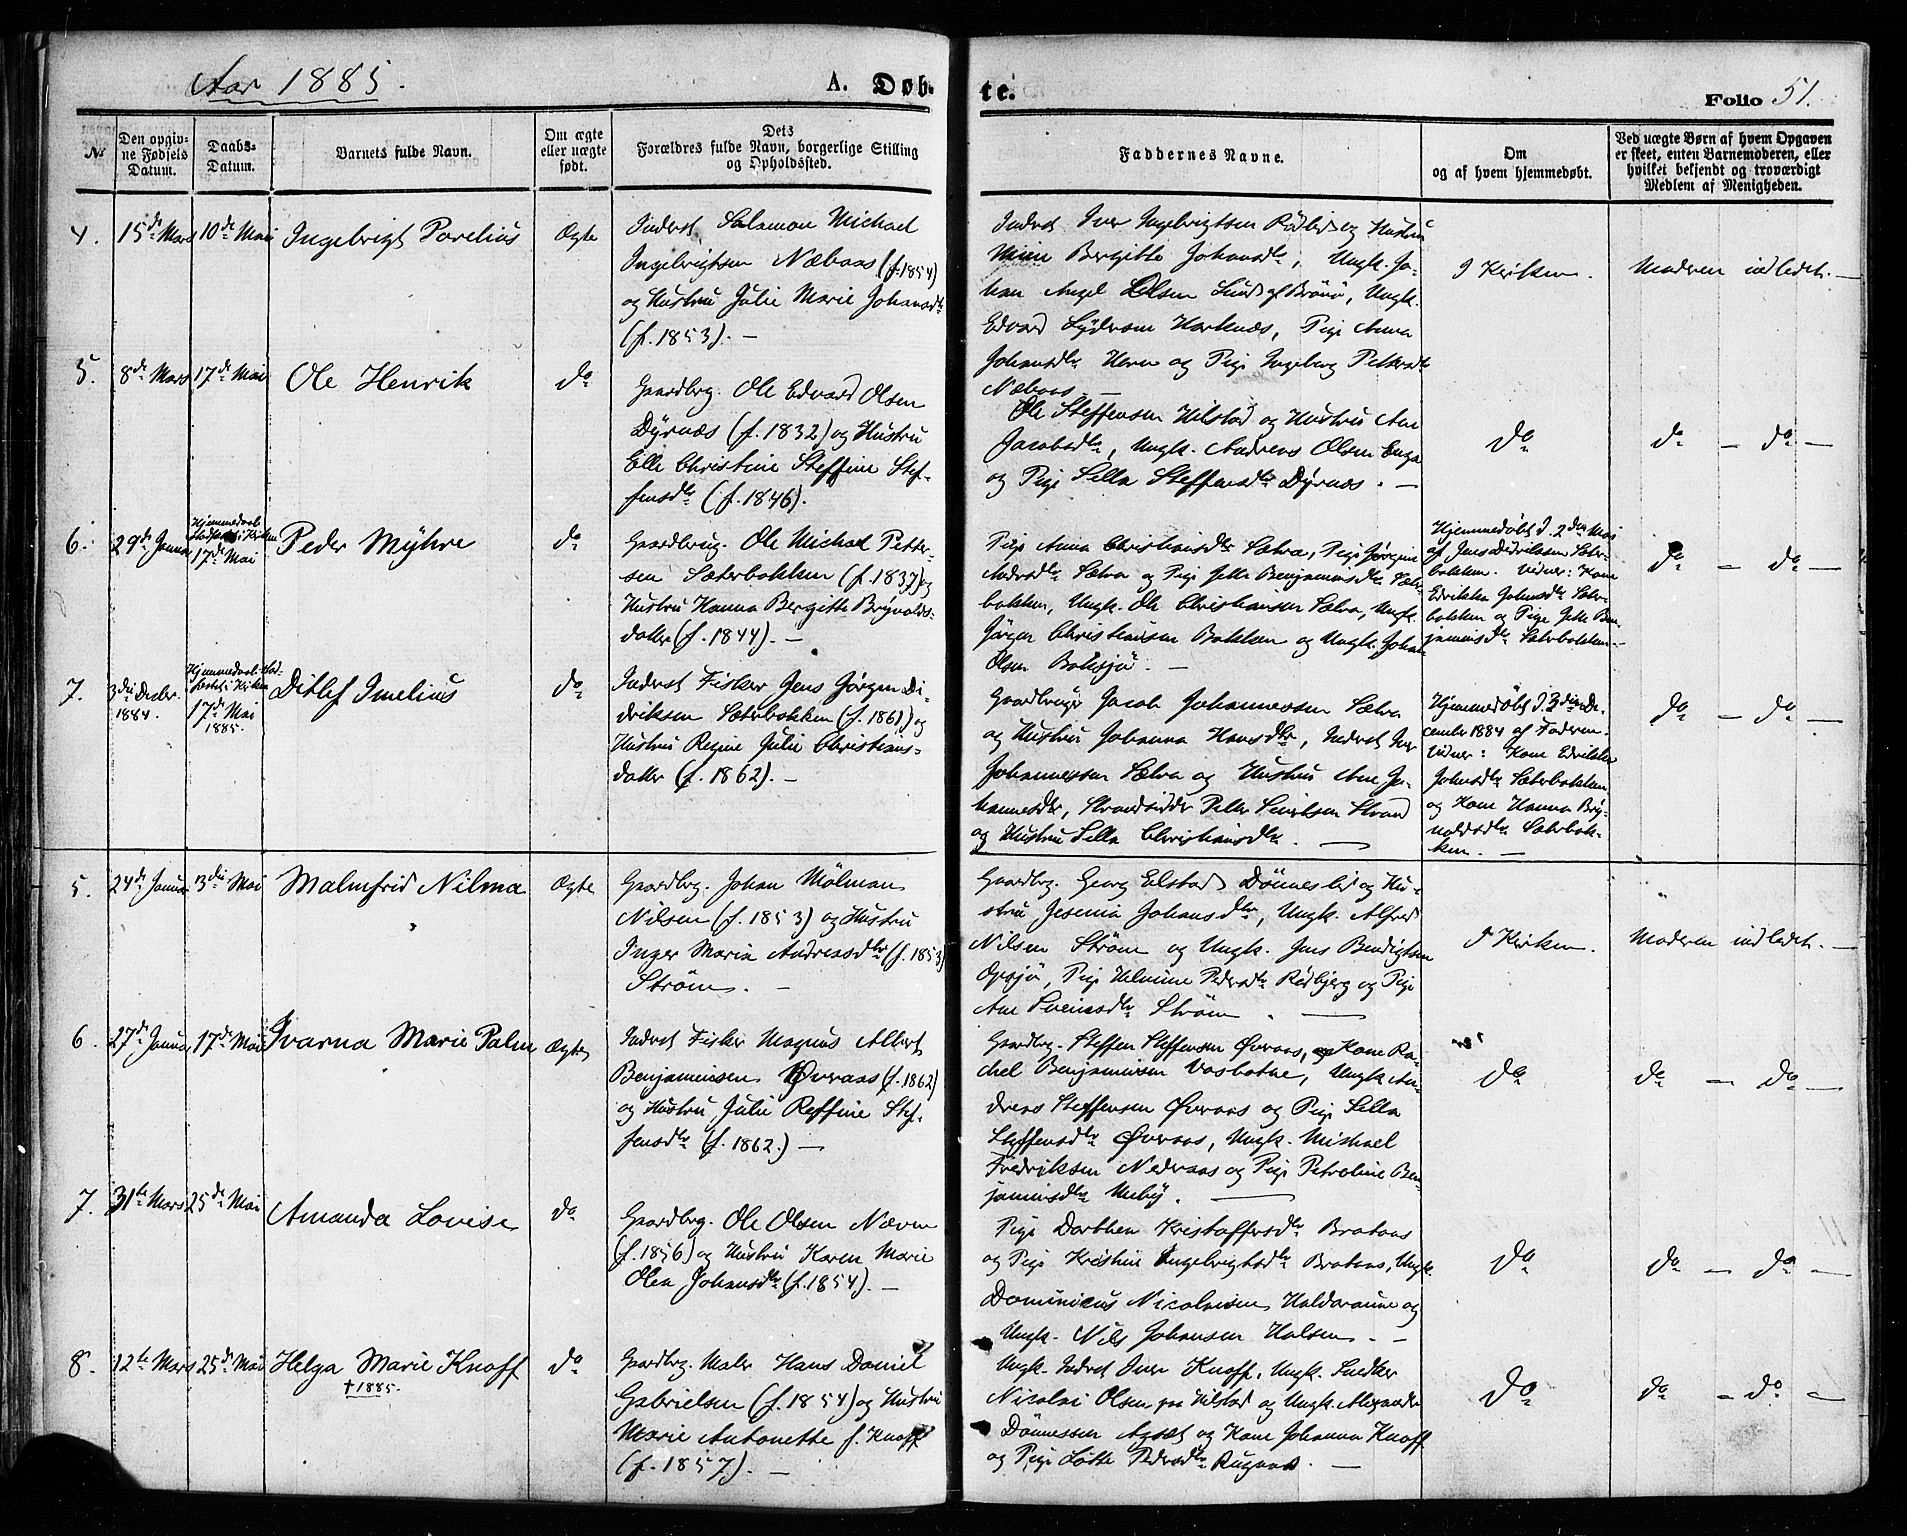 Aar 1885.
A. Døb-
te.
Folio 51.
No
Den opgiv-
ne Fødsels
Datum.
Daabs-
Datum.
Barnets fulde Navn.
Om ægte
eller uægte
født.
Dets
Forældres fulde Navn, borgerlige Stilling
og Opholdssted.
Faddernes Navne.
Om
og af hvem hjemmedøbt.
Ved uægte Børn af hvem Opgaven
er skeet, enten Barnemoderen, eller
hvilket bekjendt og troværdigt
Medlem af Menigheden.
4. 15de Mars 10de Mai Ingebrigt Parelius Ægte
Inderst Salamon Michael
Ingebrigtsen Næbaas (f. 1854)
og Hustru Julie Marie Johansdtr
(f. 1853). —
Inderst Iver Ingebrigtsen Rødlid og Hustru
Mine Bergitte Johansdtr, Ungk. Jo-
han Angel Olsen Lund af Brönö, Ungk.
Edvard Lydersen Horknæs, Pige Anna
Johansdtr Horn og Pige Ingeborg Pettersdtr
Næbaas —
I Kirken.
Moderen indledet. —
5. 8de Mars 17de Mai Ole Henrik do
Gaardbrg. Ole Edvard Olsen
Dyrnæs (f. 1832) og Hustru
Elle Christine Steffine Stef-
fensdtr (f. 1846).
Ole Steffensen Vilstad og Hustru Ane
Jacobsdtr, Ungk. Andreas Olsen Enga
og Pige Sella Steffensdtr Dyrnæs. —
do
do — do —
6. 29de Januar
Hjemmedaab
Stadfæstet i Kirken
17de Mai
Peder Myhre do
Gaardbrug. Ole Michael Petter-
sen Sæterbakken (f. 1837) og
Hustru Hanna Bergitte Brynolds-
datter (f. 1844). —
Pige Anna Christiansdtr Sælva, Pige Jørgine
Andersdtr Sælva og Pige Jette Benjaminsdtr Sæter-
bakken, Ungk. Ole Christiansen Sælva, Ungk.
Jørgen Christiansen Bakken og Ungk. Johan
Olsen Boksjø. —
Hjemmedøbt d. 2den Mai
af Jens Didriksen Sæter-
bakken. Vidner: Kone
Edrikka Johnsdtr Sæter-
bakken og Pige Jette Ben-
jaminsdtr Sæterbakken.
do — do —
7. 3die Decbr.
1884.
Hjemmedaab stad-
fæstet i Kirken
17de Mai
1885.
Ditlef Imelius do
Inderst Fisker Jens Jørgen Di-
driksen Sæterbakken (f. 1861) og
Hustru Regine Julie Christians-
datter (f. 1862). —
Gaardbruger Jacob Johannessen Sælva
og Hustru Johanna Hansdtr, Inderst Iver
Johannessen Sælva og Hustru Ane Jo-
hannesdtr, Strandsidder Peter Sivertsen Strand
og Hustru Sella Christiansdtr. —
Hjemmedøbt d. 3die De-
cember 1884 af Faderen.
Vidner: Kone Edrikka
Johnsdtr Sæterbakken
og Kone Hanna Bry-
noldsdtr Sæterbak-
ken. —
do — do —
5. 24de Januar 3die Mai Malmfrid Nilma Ægte
Gaardbrg. Johan Mølman
Nilsen (f. 1853) og Hustru
Inger Maria Andreasdtr (f. 1853)
Strøm. —
Gaardbrg. Georg Elstad Dønneslid og Hu-
stru Jesenia Johansdtr, Ungk. Alfred
Nilsen Strøm og Ungk. Jens Bendigtsen
Opsjø, Pige Helmine Pedersdtr Rødbjerg og Pige
Ane Svensdtr Strøm. —
I Kirken.
Moderen indledet. —
6. 27de Januar 17de Mai Ivarna Marie Palm Ægte
Inderst Fisker Magnus Albert
Benjaminsen Øveraas (f. 1862)
og Hustru Julie Reffine Stef-
fensdtr (f. 1862.) —
Gaardbrg. Steffen Steffensen Øvraas, Kone Ra-
chel Benjaminsen Vasbotne, Ungk. An-
dreas Steffensen Øvraas og Pige Sella
Steffensdtr Øvraas, Ungk. Michael
Fredriksen Nedraas og Pige Petroline Ben-
jaminsdtr Moeby. —
do
do — do —
7. 31te Mars 25de Mai Amanda Lovise do
Gaardbrg. Ole Olsen Næver
(f. 1856) og Hustru Karen Marie
Olea Johansdtr (f. 1854). —
Pige Dorthea Kristoffersdtr Brataas
og Pige Kristine Ingebrigtsdtr Brataas, Ungk.
Dominicus Nicolaisen Haldoraune og
Ungk. Nils Johansen Halsen. —
do
do — do —
8. 12te Mars 25de Mai Helga Marie Knoff do
† 1885.
Gaardbrg. Maler Hans Daniel
Gabrielsen (f. 1854) og Hustru
Marie Antonette f. Knoff
(f. 1857). —
Ungk. Inderst Iver Knoff, Ungk. Snedker
Nicolai Olsen paa Vilstad og Ungk. Alexander
Dønnessen Agsæt og Kone Johanna Knoff
og Pige Lotte Pedersdtr Rugaas. —
do
do — do —